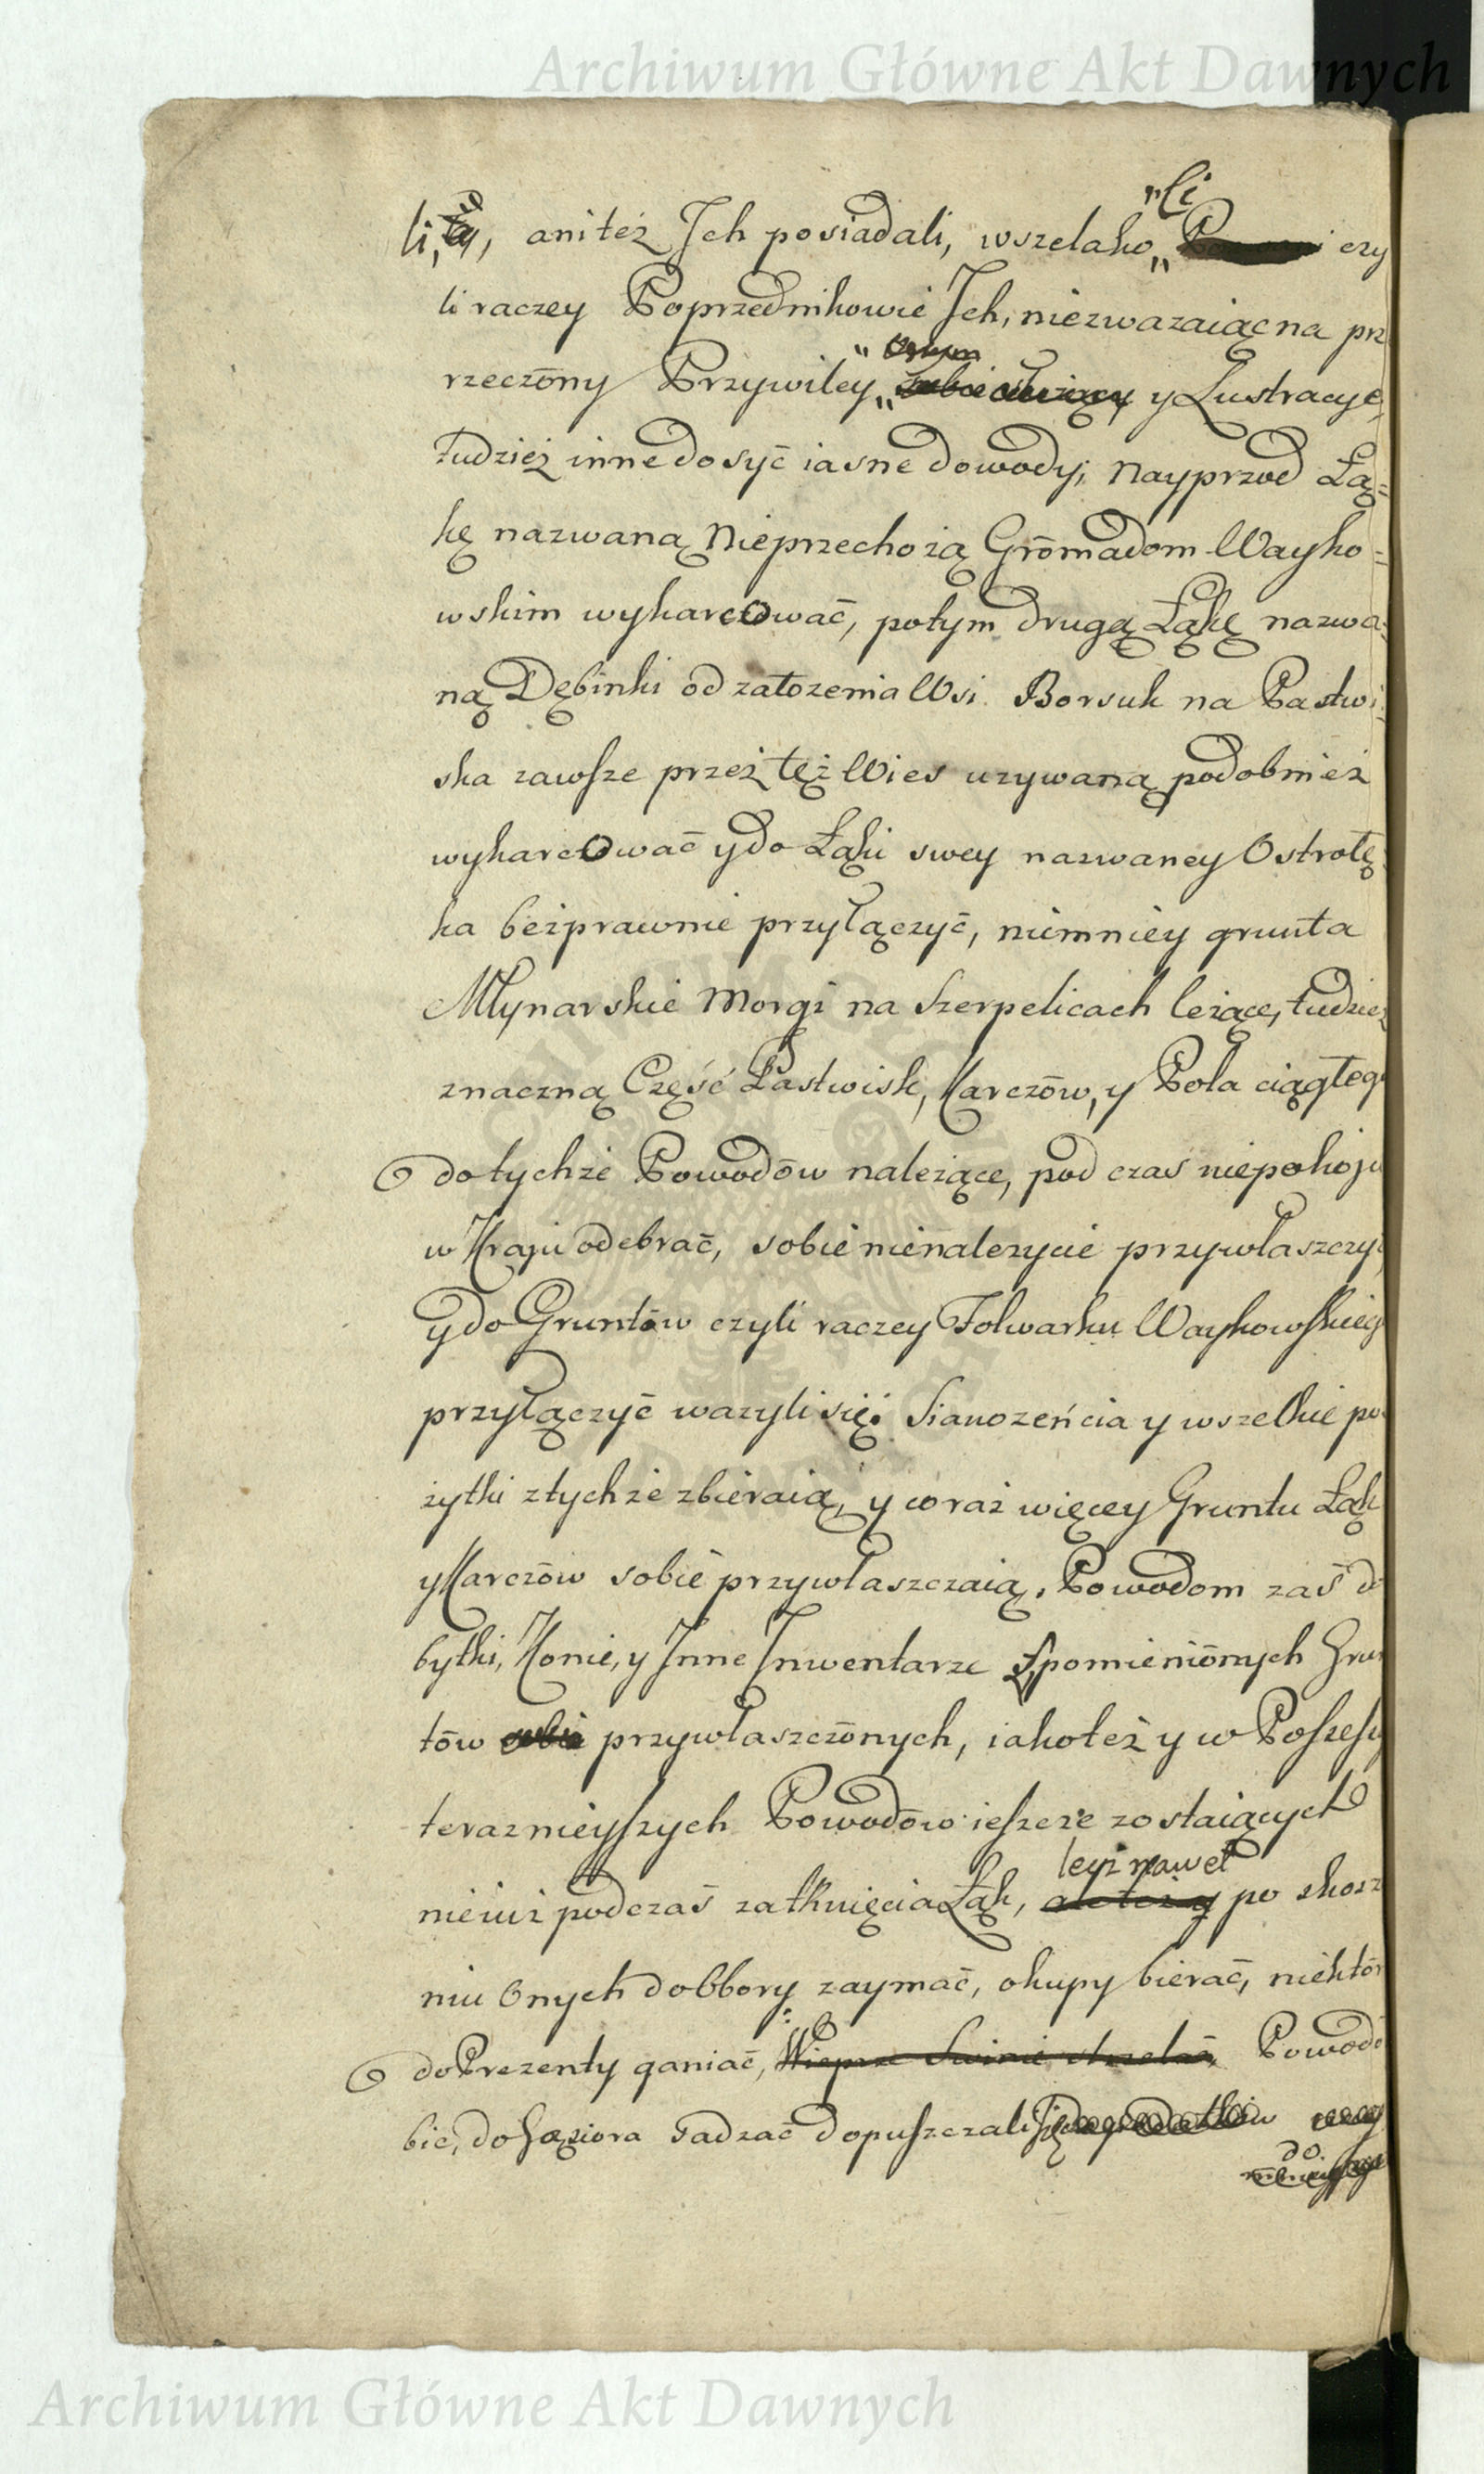 Archiwum Główne Akt Dawnych
li, anitéż Jch posiadali, wszelako „li czy
li raczey Poprzednikowie Jch, niezwazaiąc na prz
rzeczōny Przywiley „ y Lustracye,
tudzież inne dosyć iasne dowody; Nayprzod Łą=
kę nazwaną Nieprzechożą Grōmadom Wayko=
wskim wykarcować, potym drugą Łąkę nazwa=
ną Dębinki od zatozenia Wsi Borsuk na Pastwi
ska zawsze przez tęż Wies uzywaną podobnież
wykarcować y do Łąki swey nazwaney Ostrołę
ka bezprawnie przyłączyć, niemniey grunta
Młynarskie Morgi na Szerpelicach leżące, tudziez
znaczną Część Pastwisk, Karczōw, y Pola ciągłego
do tychże Powodōw należące, pod czas niepokoju
w Kraju odebrać, sobie nienalezycie przywłaszczyć
y do Gruntōw czyli raczey Folwarku Waykowskiego
przyłączyć wazyli się; Sianozeńcia y wszelkie po
żytki z tychże zbieraią, y coraz więcey Gruntu Łąk
y Karczōw sobie przywłaszczaią. Powodom zaś do
bytki, Konie, y Jnne Jnwentarze z pomieniōnych Grun
tōw przywłaszczōnych, iakoteż y w Possessy
teraznieyszych Powodōw ieszcze zostaiących
lecz nawet
nieiuż podczas zatknięcia Łąk, po skosze
niu Onych do Obory zaymać, okupy bierać, niektōr
do Prezenty ganiać, Wieprze Swinie strzelać, Powodō
bić, do Jęziora sadzać dopuszczali się
do
Archiwum Główne Akt Dawnych